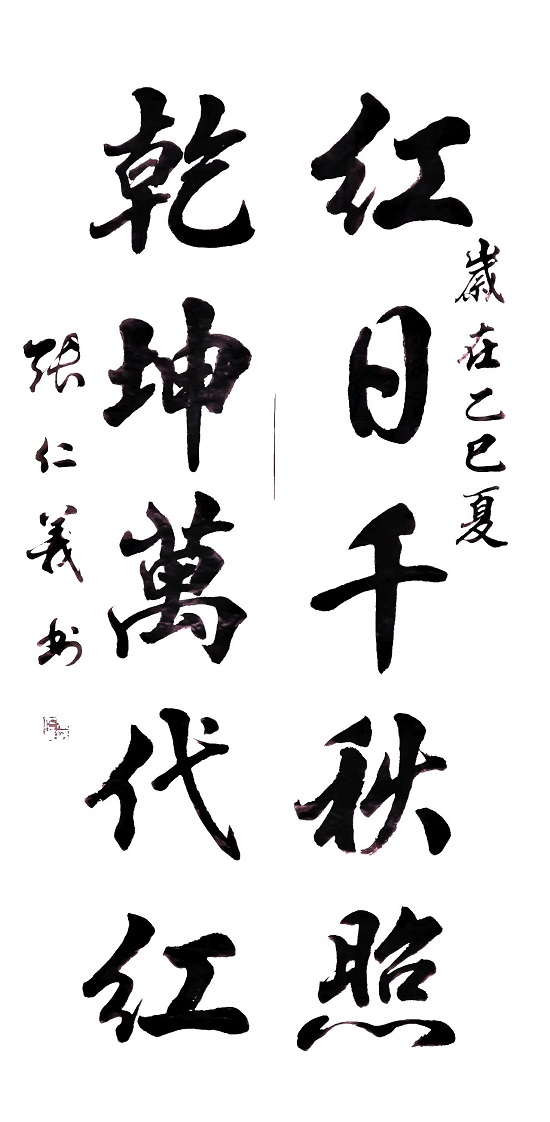 歲在乙巳夏
红日千秋照
乾坤萬代红
張仁義书